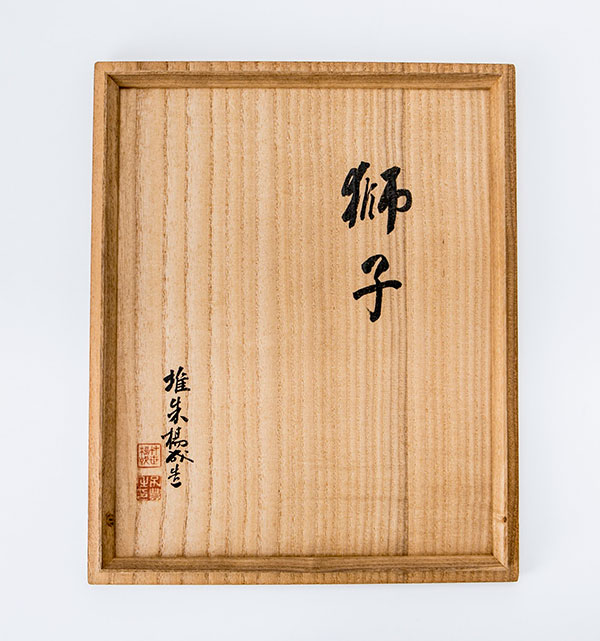 獅子
堆朱楊成造